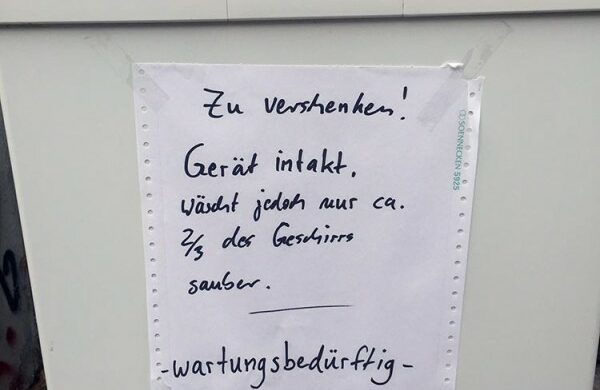 Zu vershenken!
Gerät intakt,
wäscht jedoch nur ca.
2/3 des Geschirrs
sauber.
-wartungsbedürftig-
SOENNECKEN 5925